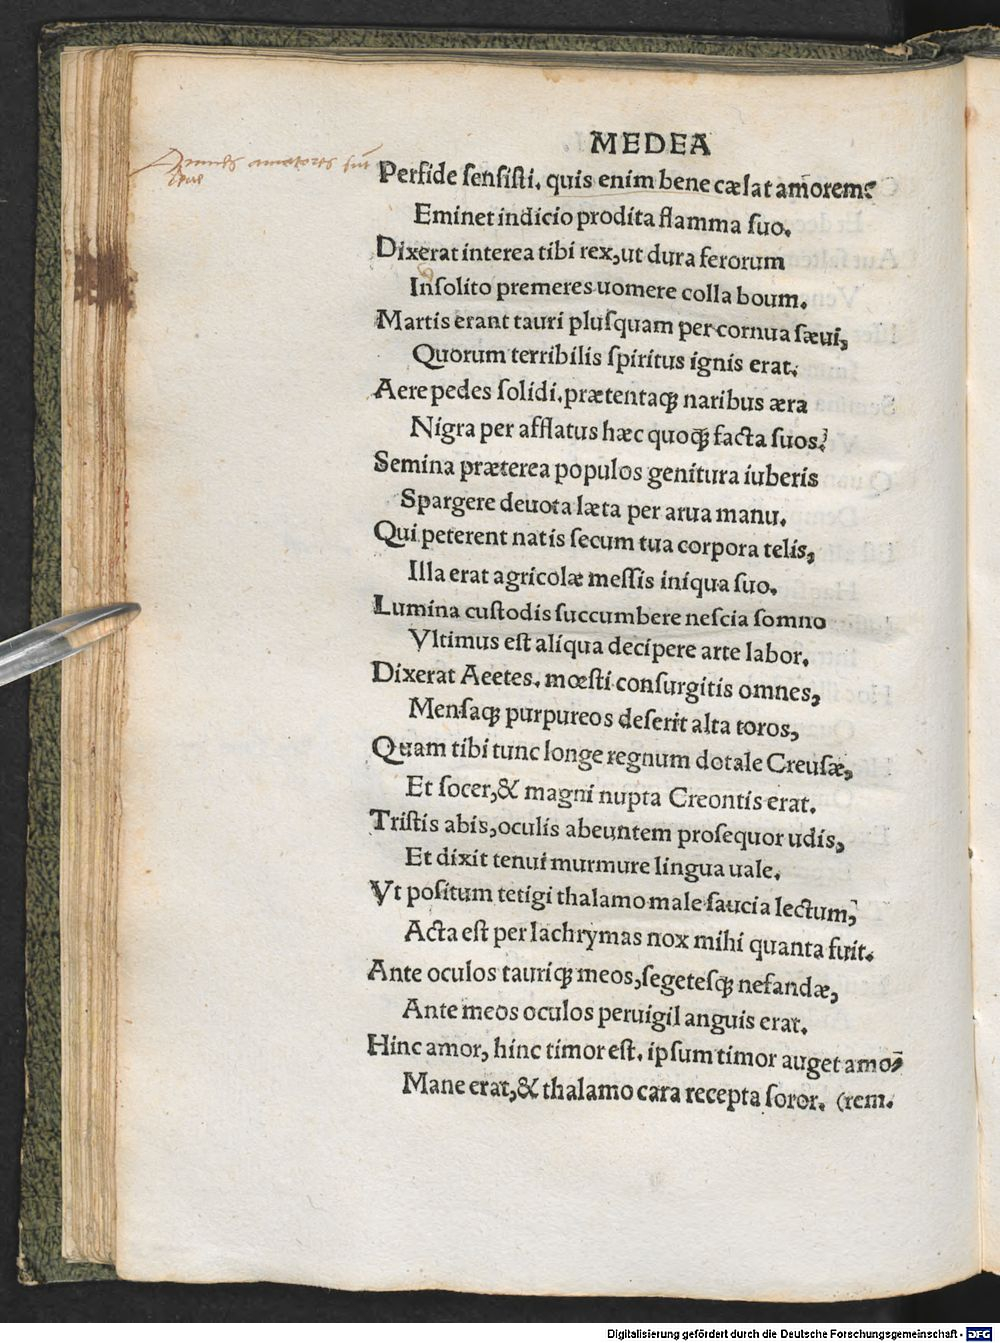 MEDEA
Omnes amatores sūt
Perfide ſenſiſti. quis enim bene cælat amorem?
Eminet indicio prodita flamma ſuo.
Dixerat interea tibi rex, ut dura ferorum
Inſolito premeres uomere colla boum.
Martis erant tauri pluſquam per cornua ſæui,
Quorum terribilis ſpiritus ignis erat.
Aere pedes ſolidi. prætentaq; naribus æra
Nigra per afflatus hæc quoq; facta ſuos.
Semina præterea populos genitura iuberis
Spargere deuota læta per arua manu.
Qui peterent natis ſecum tua corpora telis,
Illa erat agricolæ meſſis iniqua ſuo.
Lumina cuſtodis ſuccumbere neſcia ſomno
Vltimus eſt aliqua decipere arte labor.
Dixerat Aeetes. mœſti conſurgitis omnes,
Menſaq; purpureos deſerit alta toros,
Quam tibi tunc longe regnum dotale Creuſæ,
Et ſocer, & magni nupta Creontis erat.
Triſtis abis, oculis abeuntem proſequor udis,
Et dixit tenui murmure lingua uale.
Vt poſitum tetigi thalamo male ſaucia lectum,
Acta eſt per lachrymas nox mihi quanta fuit.
Ante oculos tauriq; meos, ſegeteſq; nefandæ,
Ante meos oculos peruigil anguis erat.
Hinc amor, hinc timor eſt. ipſum timor auget amo⸗
Mane erat, & thalamo cara recepta ſoror. (rem.
Digitalisierung gefördert durch die Deutsche Forschungsgemeinschaft - DFG